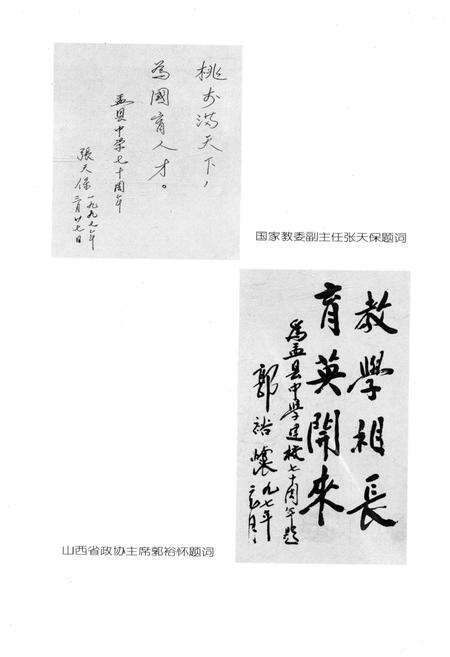 桃李满天下，
為國育人才。
盂县中学七十周年
張天保
一九九七年
三月廿七日
国家教委副主任张天保题词
教學相長
育英開來
为盂县中學建校七十周年题
郭裕懷
九七年
山西省政协主席郭裕怀题词